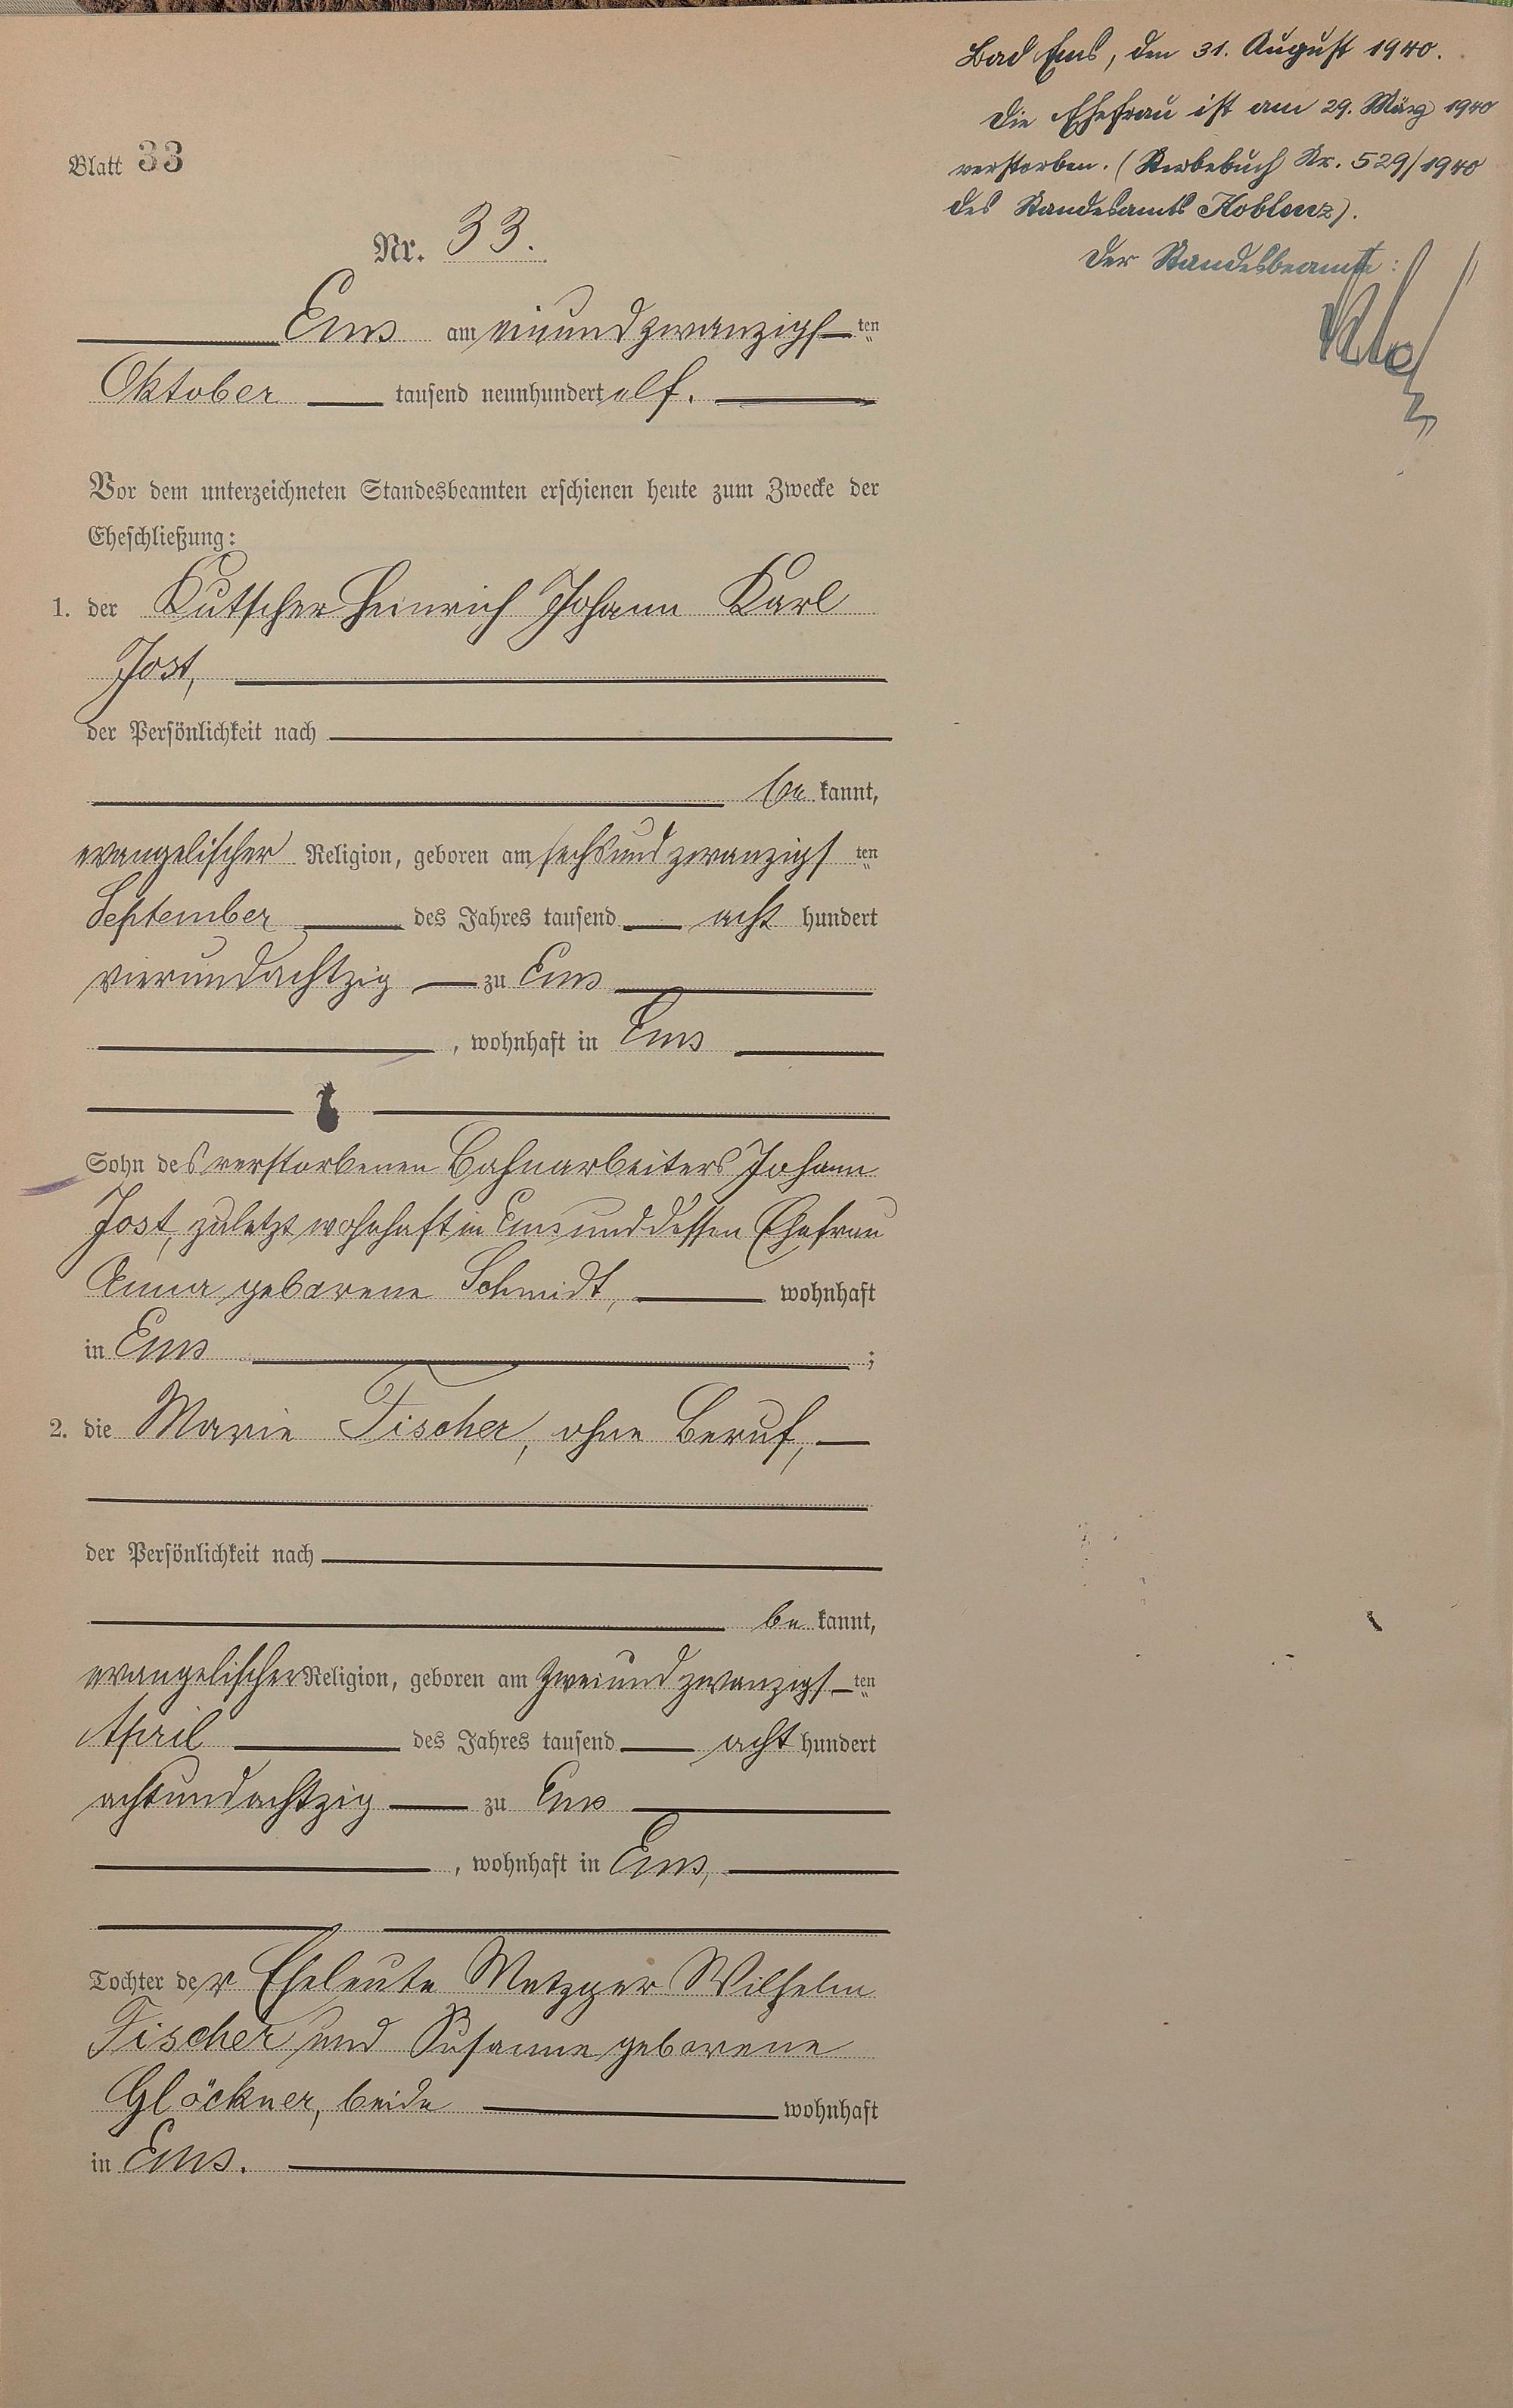 Bad Ems, den 31. August 1940.
Die Ehefrau ist am 29. März 1940
verstorben. (Sterbebuch Nr. 529/1940
des Standesamts Koblenz).
Der Standesbeamte:
Blatt 33
Nr. 33.
Ems am einundzwanzigsten
Oktober tausend neunhundert elf.
Vor dem unterzeichneten Standesbeamten erschienen heute zum Zwecke der
Eheschließung:
1. der Kutscher Heinrich Johann Karl
Jost,
der Persönlichkeit nach
be kannt,
evangelischer Religion, geboren am sechsundzwanzigsten
September des Jahres tausend acht hundert
vierundachtzig zu Ems
, wohnhaft in Ems
Sohn des verstorbenen Bahnarbeiters Johann
Jost, zuletzt wohnhaft in Ems und dessen Ehefrau
Anna geborene Schmidt, wohnhaft
in Ems ;
2. die Marie Fischer, ohne Beruf,
der Persönlichkeit nach
be kannt,
evangelischer Religion, geboren am zweiundzwanzigsten
April des Jahres tausend acht hundert
achtundachtzig zu Ems
, wohnhaft in Ems,
Tochter der Eheleute Metzger Wilhelm
Fischer und Susanne geborene
Glöckner, beide wohnhaft
in Ems.